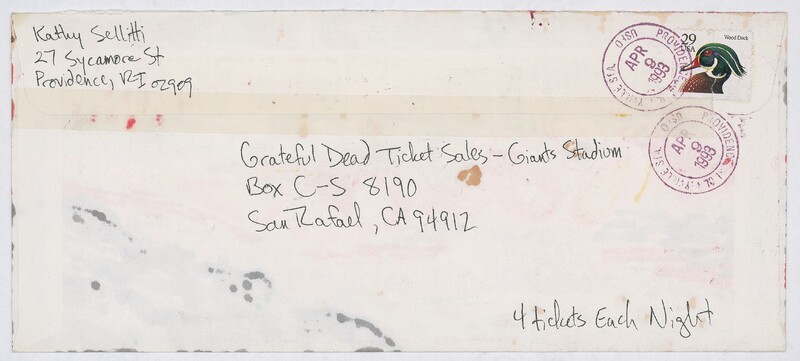 Kathy Sellitti
27 Sycamore St
Providence, RI 02909
29
USA
Wood Duck
USPO PROVIDENCE
APR 9 1993
USPO PROVIDENCE
APR 9 1993
Grateful Dead Ticket Sales - Giants Stadium
Box C-S 8190
San Rafael, CA 94912
4 tickets Each Night